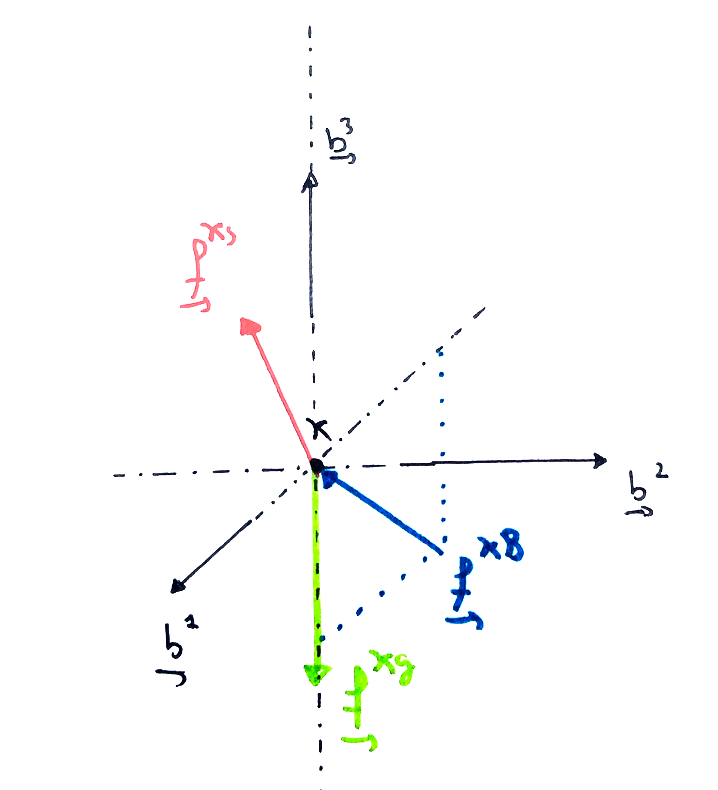 b³
f^xs
x
b²
f^xB
b¹
f^xg